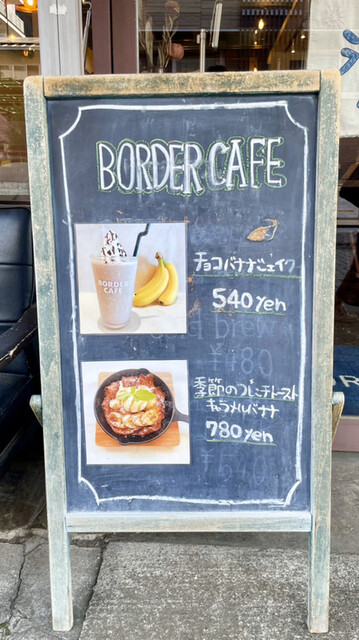 BORDER CAFE
BORDER
CAFE
チョコバナナシェイク
540 yen
季節のフレンチトースト
キャラメルバナナ
780 yen